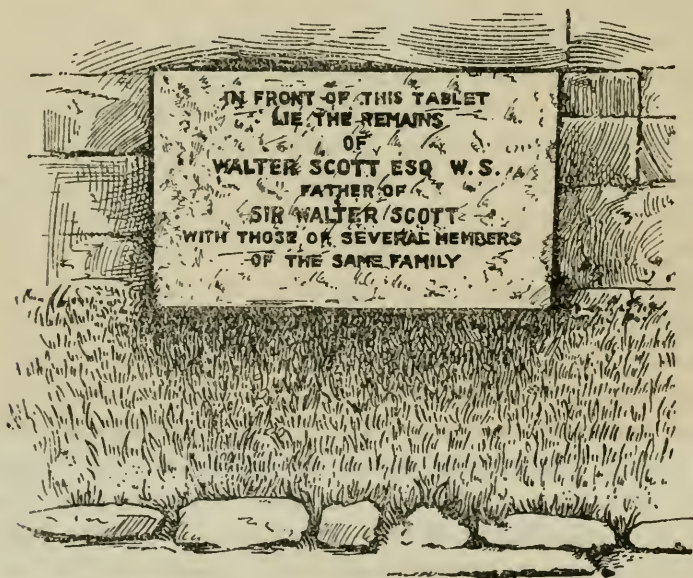 IN FRONT OF THIS TABLET
LIE THE REMAINS
OF
WALTER SCOTT ESQ W.S.
FATHER OF
SIR WALTER SCOTT
WITH THOSE OF SEVERAL MEMBERS
OF THE SAME FAMILY